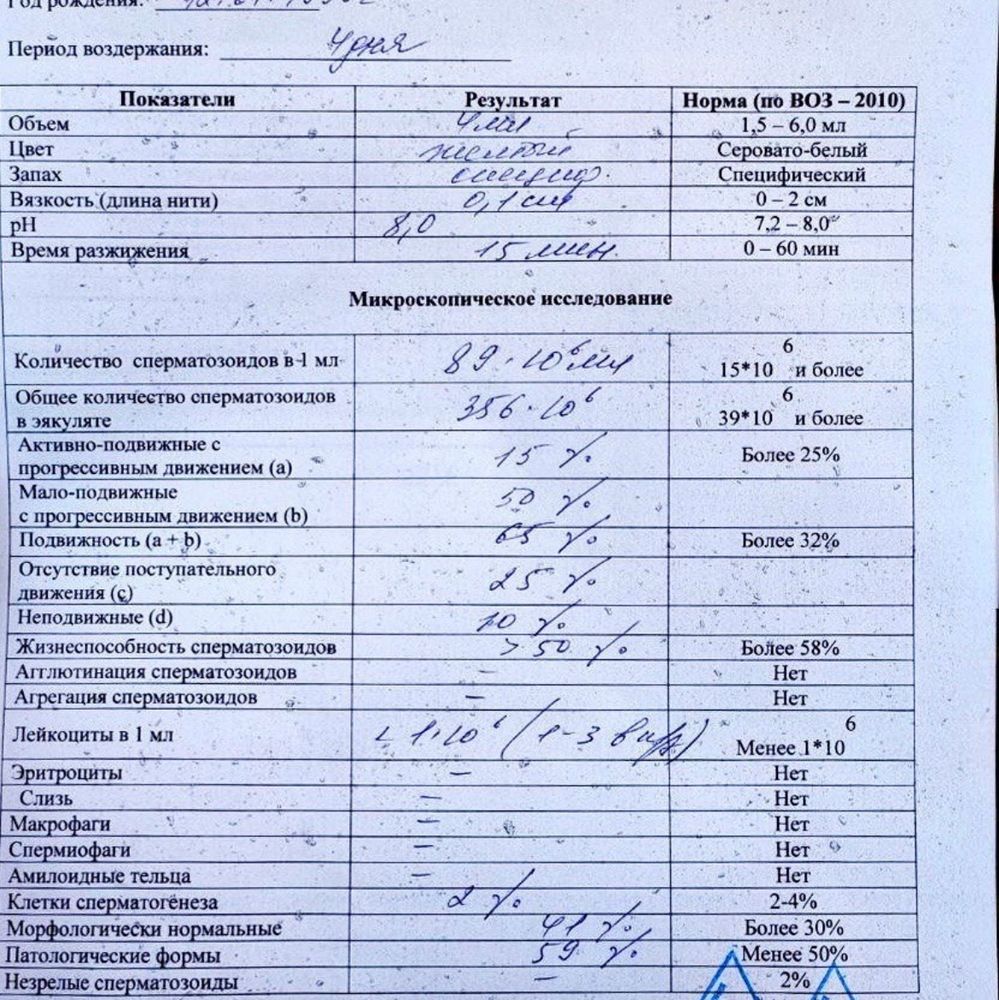 Год рождения:
Период воздержания: 4 дня
Показатели Результат Норма (по ВОЗ – 2010)
Объем 4 мл 1,5 – 6,0 мл
Цвет желтый Серовато-белый
Запах специф. Специфический
Вязкость (длина нити) 0,1 см 0 – 2 см
pH 8,0 7,2 – 8,0
Время разжижения 15 мин. 0 – 60 мин
Микроскопическое исследование
6
Количество сперматозоидов в 1 мл 89·10⁶ мл 15*10 и более
Общее количество сперматозоидов 6
в эякуляте 356·10⁶ 39*10 и более
Активно-подвижные с
прогрессивным движением (a) 15 % Более 25%
Мало-подвижные
с прогрессивным движением (b) 50 %
Подвижность (a + b) 65 % Более 32%
Отсутствие поступательного
движения (c) 25 %
Неподвижные (d) 10 %
Жизнеспособность сперматозоидов > 50 % Более 58%
Агглютинация сперматозоидов – Нет
Агрегация сперматозоидов – Нет
6
Лейкоциты в 1 мл < 1·10⁶ (1-3 в п/з) Менее 1*10
Эритроциты – Нет
Слизь – Нет
Макрофаги – Нет
Спермиофаги – Нет
Амилоидные тельца – Нет
Клетки сперматогенеза 2 % 2-4%
Морфологически нормальные 41 % Более 30%
Патологические формы 59 % Менее 50%
Незрелые сперматозоиды – 2%